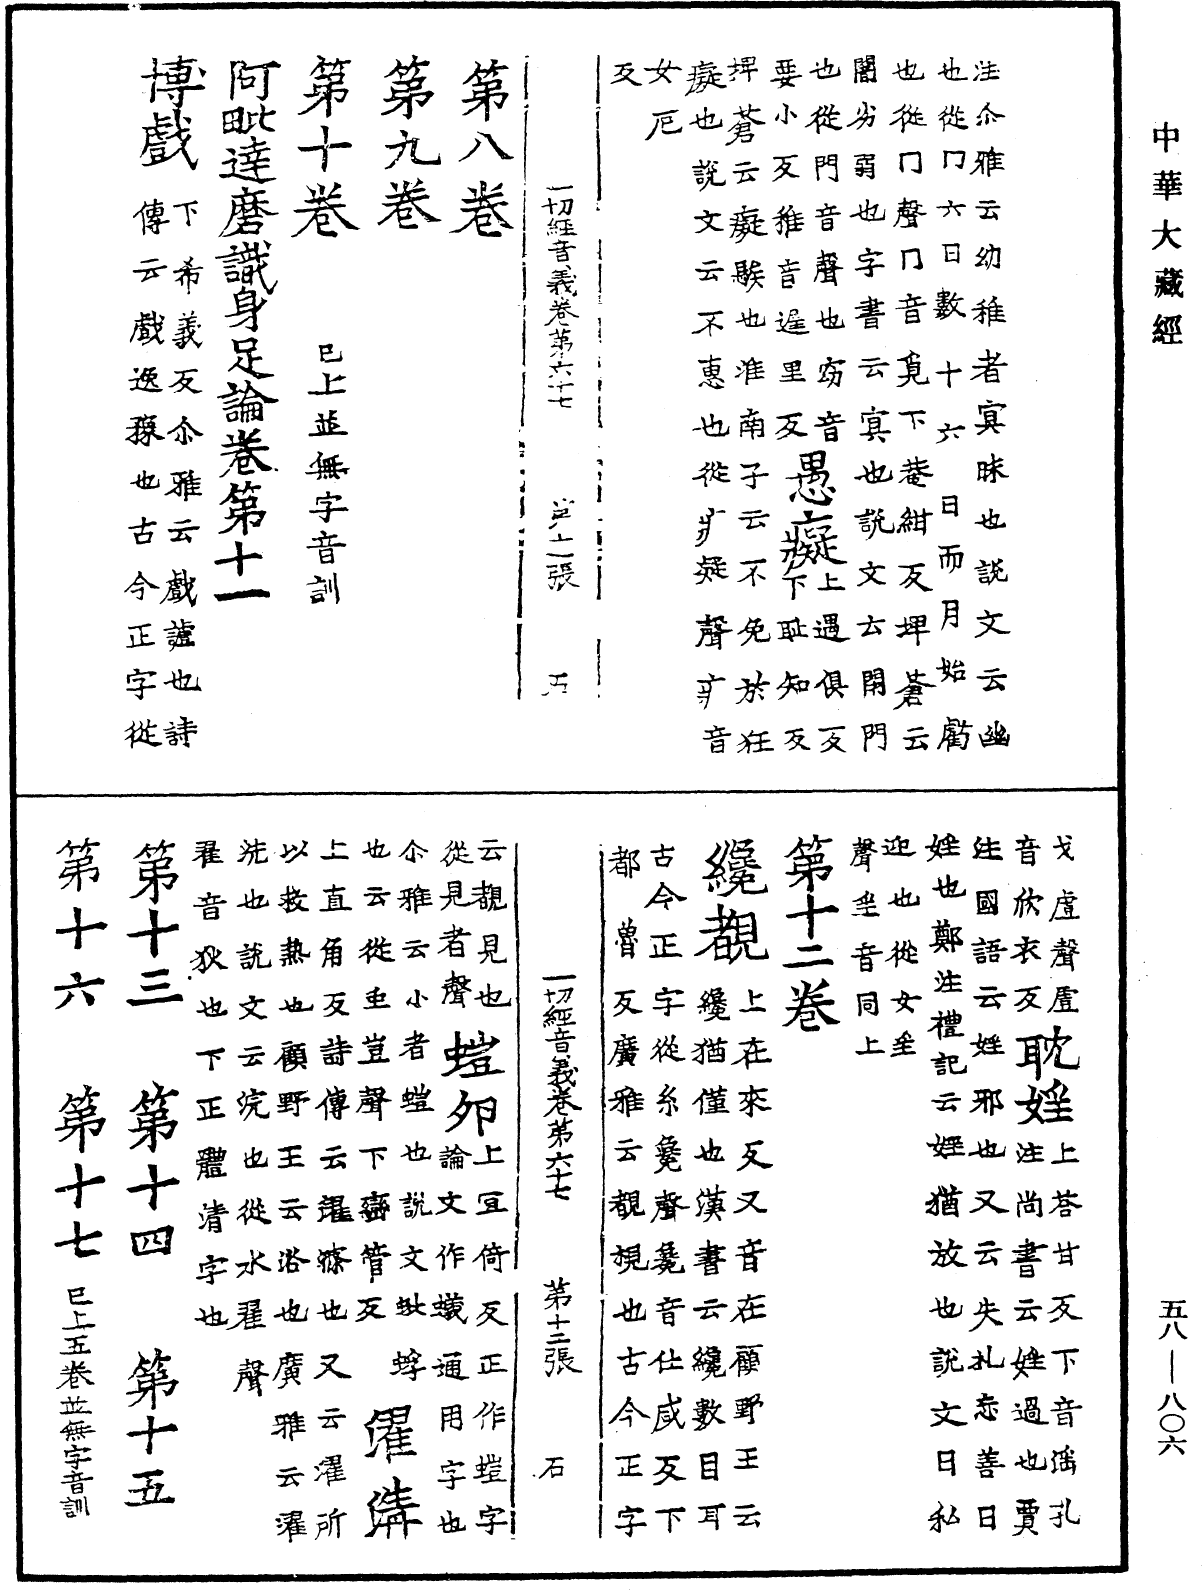 中華大藏經
注尒雅云幼稚者冥昧也說文云幽
也從冂六日數十六日而月始虧
也從冂聲冂音覓下菴紺反埤蒼云
闇劣弱也字書云冥也說文云閉門
也從門音聲也窈音
要小反稚音遲里反
愚癡
上遇俱反
下耻知反
埤蒼云癡騃也淮南子云不免於狂
癡也說文云不惠也從疒疑聲疒音
女厄
反
一切經音義卷第六十七 第十一張 石
第八卷
第九卷
第十卷 已上並無字音訓
阿毗達磨識身足論卷第十一
博戲
下希義反尒雅云戲謔也詩
傳云戲逸豫也古今正字從
戈䖒聲䖒
音欣衣反
耽婬
上荅甘反下音淫孔
注尚書云婬過也賈
注國語云婬邪也又云失礼忘善曰
婬也鄭注禮記云婬猶放也說文曰私
迎也從女㸒
聲㸒音同上
第十二卷
纔覩
上在來反又音在顧野王云
纔猶僅也漢書云纔數目耳
古今正字從糸毚聲毚音仕咸反下
都魯反廣雅云覩視也古今正字
一切經音義卷第六十七 第十二張 石
云覩見也
從見者聲
螘卵
上冝倚反正作螘字
論文作蟻通用字也
尒雅云小者螘也說文蚍蜉
也云從虫豈聲下𪗉管反
濯清
上直角反詩傳云濯滌也又云濯所
以救熱也顧野王云浴也廣雅云濯
洗也說文云浣也從水翟聲
翟音狄也下正體清字也
第十三 第十四 第十五
第十六 第十七 已上五卷並無字音訓
五八—八〇六